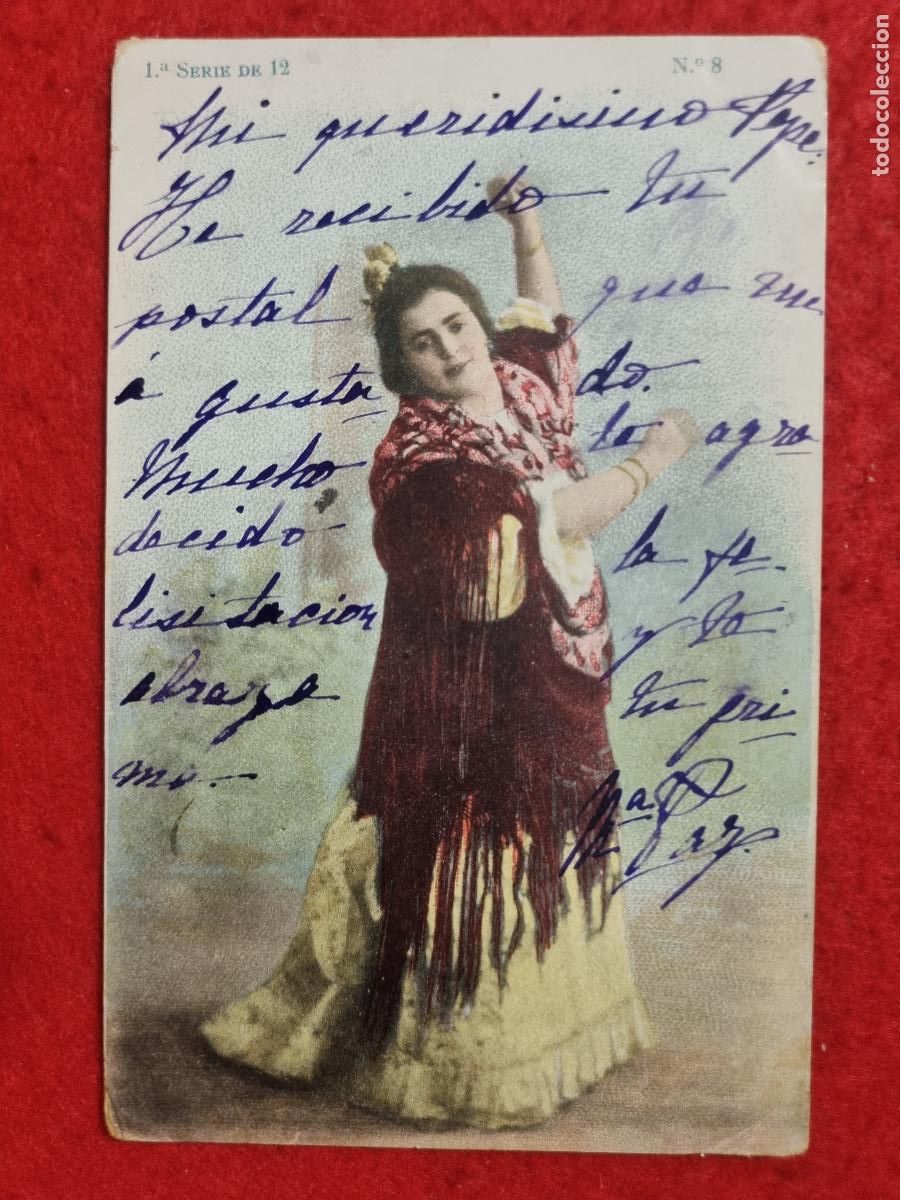 1.ª SERIE DE 12 N.º 8
Mi queridisimo Pepe.
He recibido tu
postal que me
á gusta do.
Mucho te agra
decido la fe-
lisitacion y te
abraza tu pri
ma.—
Mª Paz.
todocoleccion